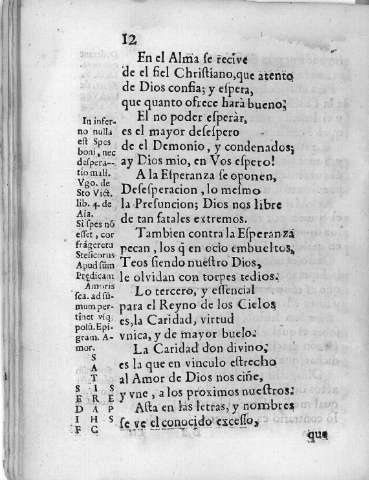 12
En el Alma se recive
de el fiel Christiano, que atento
de Dios confia; y espera,
que quanto ofrece harà bueno;
El no poder esperar,
es el mayor desespero
de el Demonio, y condenados;
ay Dios mio, en Vos espero!
A la Esperanza se oponen,
Desesperacion, lo mesmo
la Presuncion; Dios nos libre
de tan fatales extremos.
Tambien contra la Esperanza
pecan, los q̃ en ocio embueltos,
Teos siendo nuestro Dios,
le olvidan con torpes tedios.
Lo tercero, y essencial
para el Reyno de los Cielos
es, la Caridad, virtud
vnica, y de mayor buelo.
La Caridad don divino,
es la que en vinculo estrecho
al Amor de Dios nos ciñe,
y vne, a los proximos nuestros.
Asta en las letras, y nombres
se ve el conocido excesso,
que
In infer-
no nulla
est Spes
boni, nec
despera-
tio mali.
Vgo. de
Sto Vict.
lib. 4. de
Aïa.
Si spes nõ
esset, cor
frãgeretur
Stesicorus
Apud sũm
Prędicam
Amoris
sca. ad sũ-
mum per-
tinet viq.
polũ. Epi-
gram. A-
mor.
S
A
T
S I S
E R E
D A P
I H S
F C